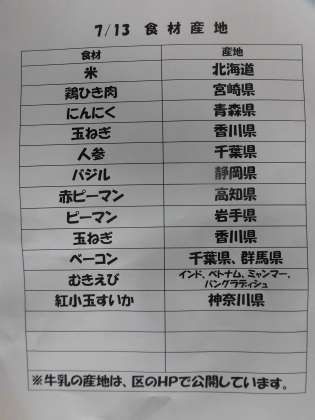 7/13 食材産地
食材 産地
米 北海道
鶏ひき肉 宮崎県
にんにく 青森県
玉ねぎ 香川県
人参 千葉県
バジル 静岡県
赤ピーマン 高知県
ピーマン 岩手県
玉ねぎ 香川県
ベーコン 千葉県、群馬県
むきえび インド、ベトナム、ミャンマー、
バングラディシュ
紅小玉すいか 神奈川県
※牛乳の産地は、区のHPで公開しています。